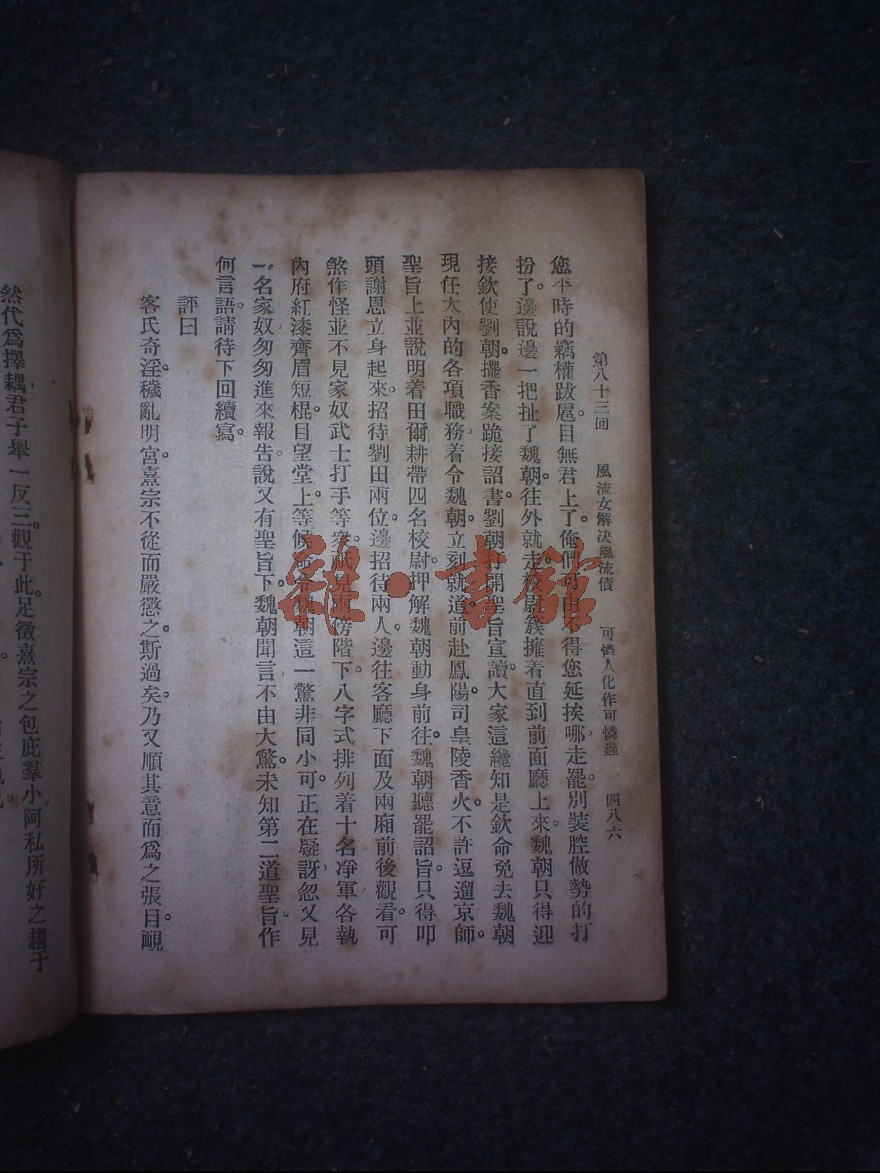 第八十三回 風流女解決風流債 可憐人化作可憐蟲 四八六
您平時的竊權跋扈。目無君上了。俺們可由不得您延挨哪。走罷。別裝腔做勢的打
扮了。邊說邊一把扯了魏朝。往外就走。校尉簇擁着。直到前面廳上來。魏朝只得迎
接欽使劉朝。擺香案。跪接詔書。劉朝打開聖旨宣讀。大家這纔知是欽命免去魏朝
現任大內的各項職務。着令魏朝。立刻就道。前赴鳳陽。司皇陵香火。不許逗遛京師。
聖旨上並說明着田爾耕帶四名校尉。押解魏朝動身前往。魏朝聽罷詔旨。只得叩
頭謝恩。立身起來。招待劉田兩位。邊招待兩人。邊往客廳下面及兩廂前後觀看。可
煞作怪。並不見家奴武士打手等衆。祇見兩傍階下。八字式排列着十名淨軍。各執
內府紅漆齊眉短棍。目望堂上。等候命令。魏朝這一驚非同小可。正在疑訝。忽又見
一名家奴匆匆進來報告。說又有聖旨下。魏朝聞言。不由大驚。未知第二道聖旨。作
何言語。請待下回續寫。
評曰
客氏奇淫。穢亂明宮。熹宗不從而嚴懲之。斯過矣。乃又順其意而爲之張目。覥
然代爲擇耦。君子舉一反三。觀于此。足徵熹宗之包庇羣小。阿私所好之趨于
雜·書館